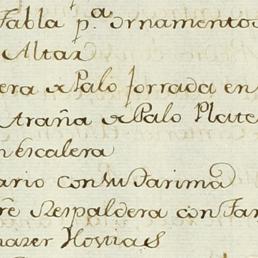 Tabla p.a ornamentos
Altar
era de Palo forrada en
traña de Palo Plate
n escalera
ario con su Tarima
re Respaldera con Tar
hazer Hostias